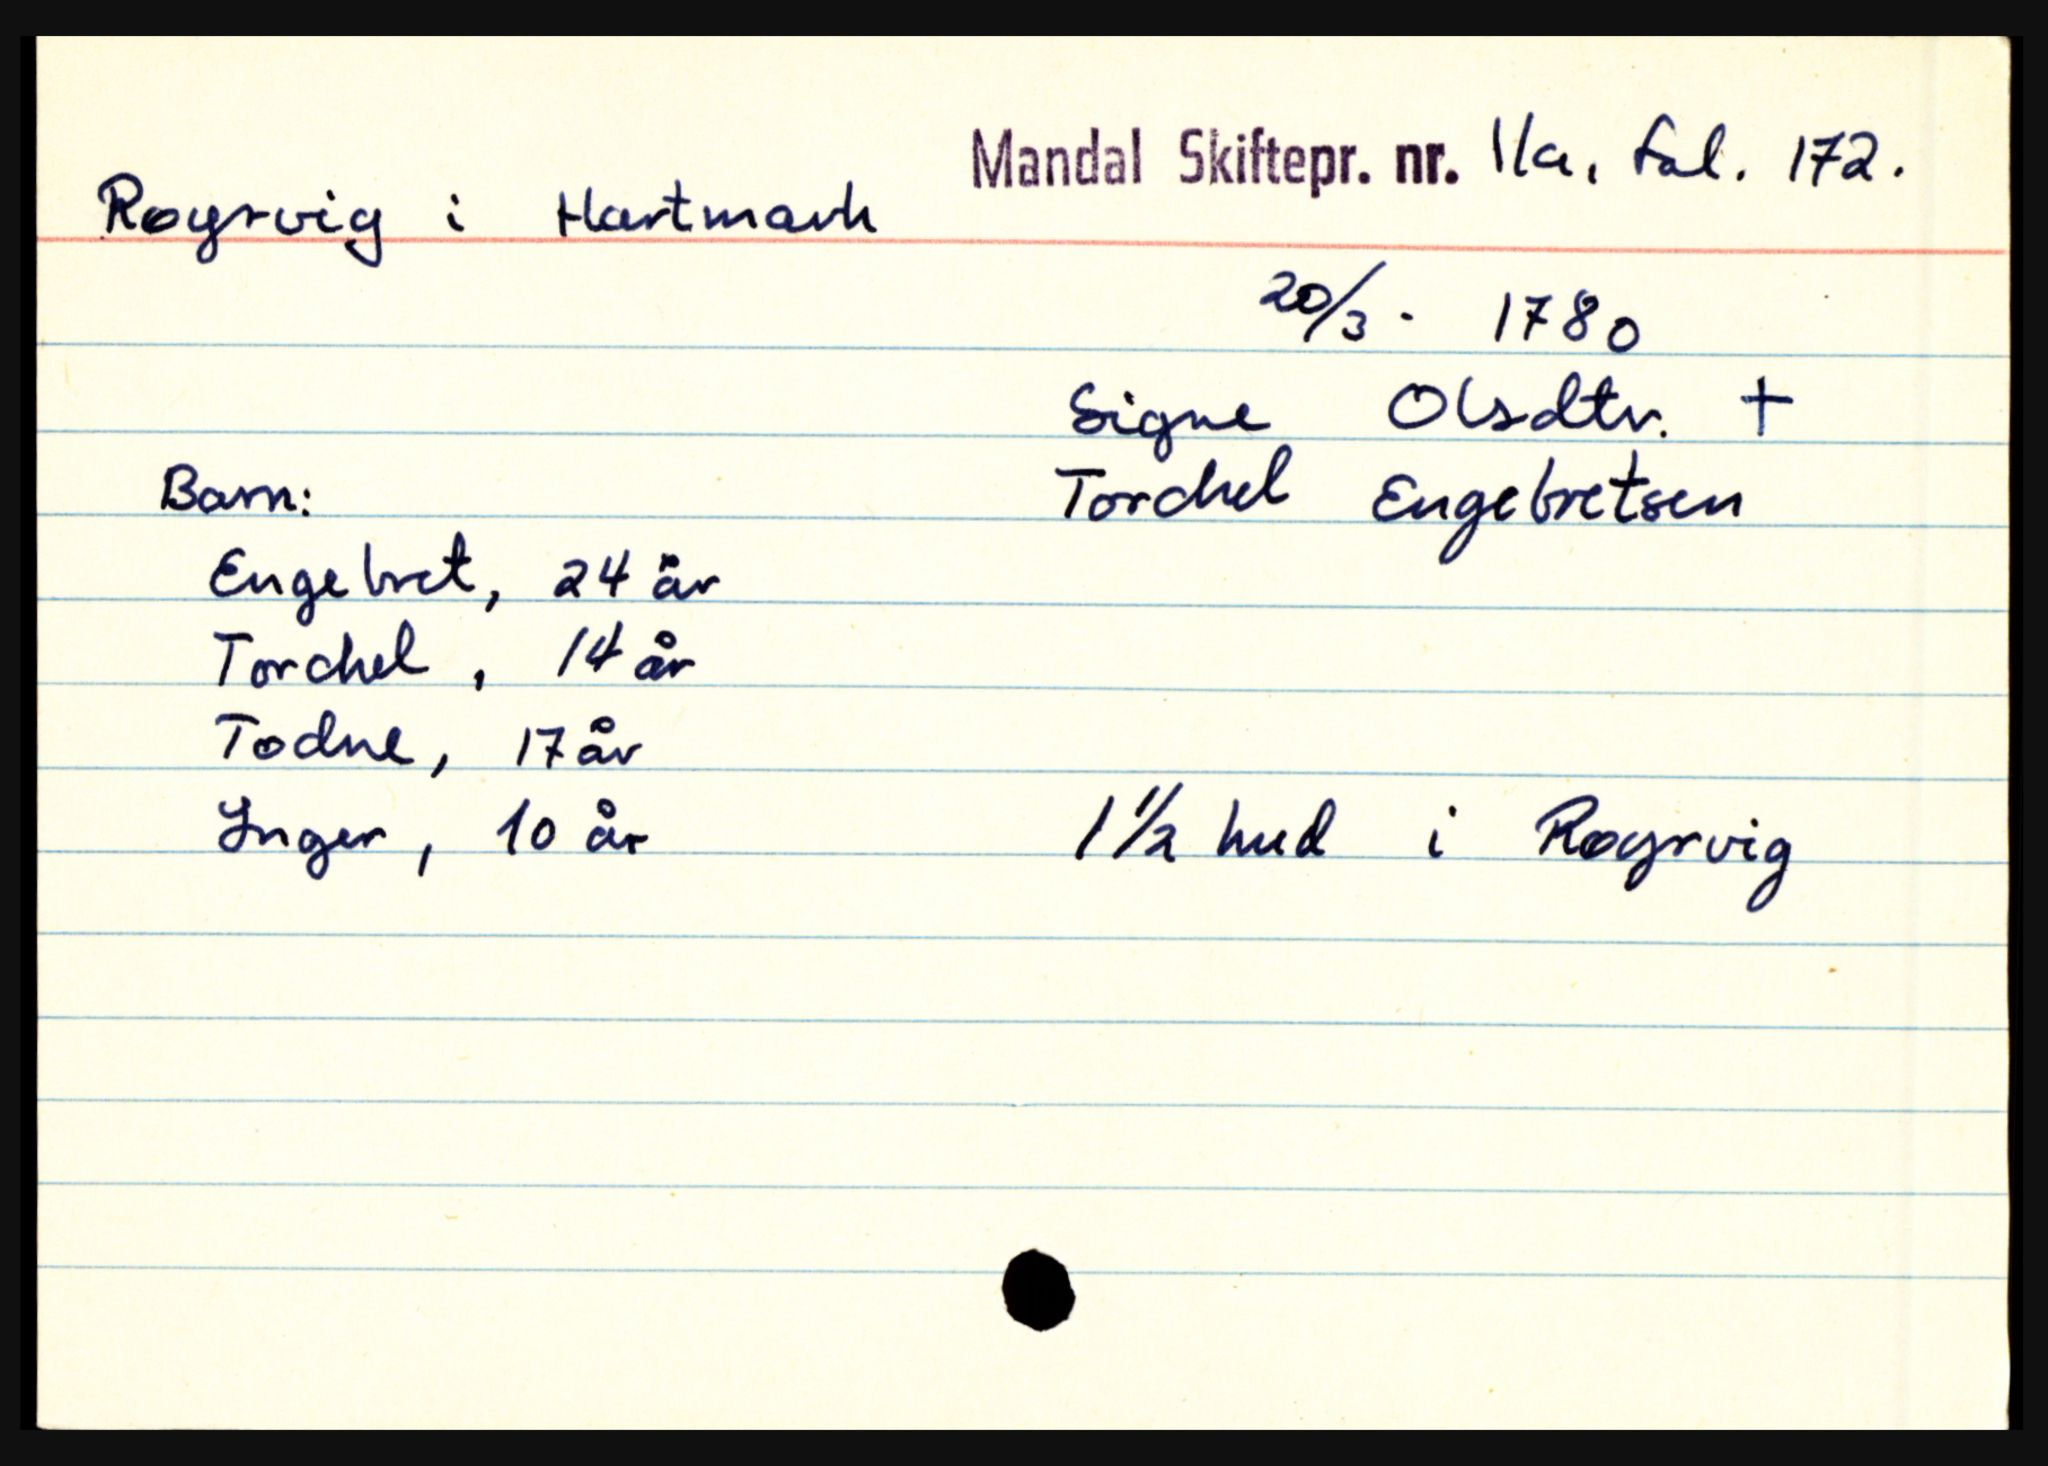 Mandal Skiftepr. nr. 1/a, fol. 172.
Røyrvig i Hartmark
20/3. 1780
Signe Olsdtr. †
Barn:
Torchel Engebretsen
Engebret, 24 år
Torchel, 14 år
Todne, 17 år
Inger, 10 år
1 1/2 hud i Røyrvig